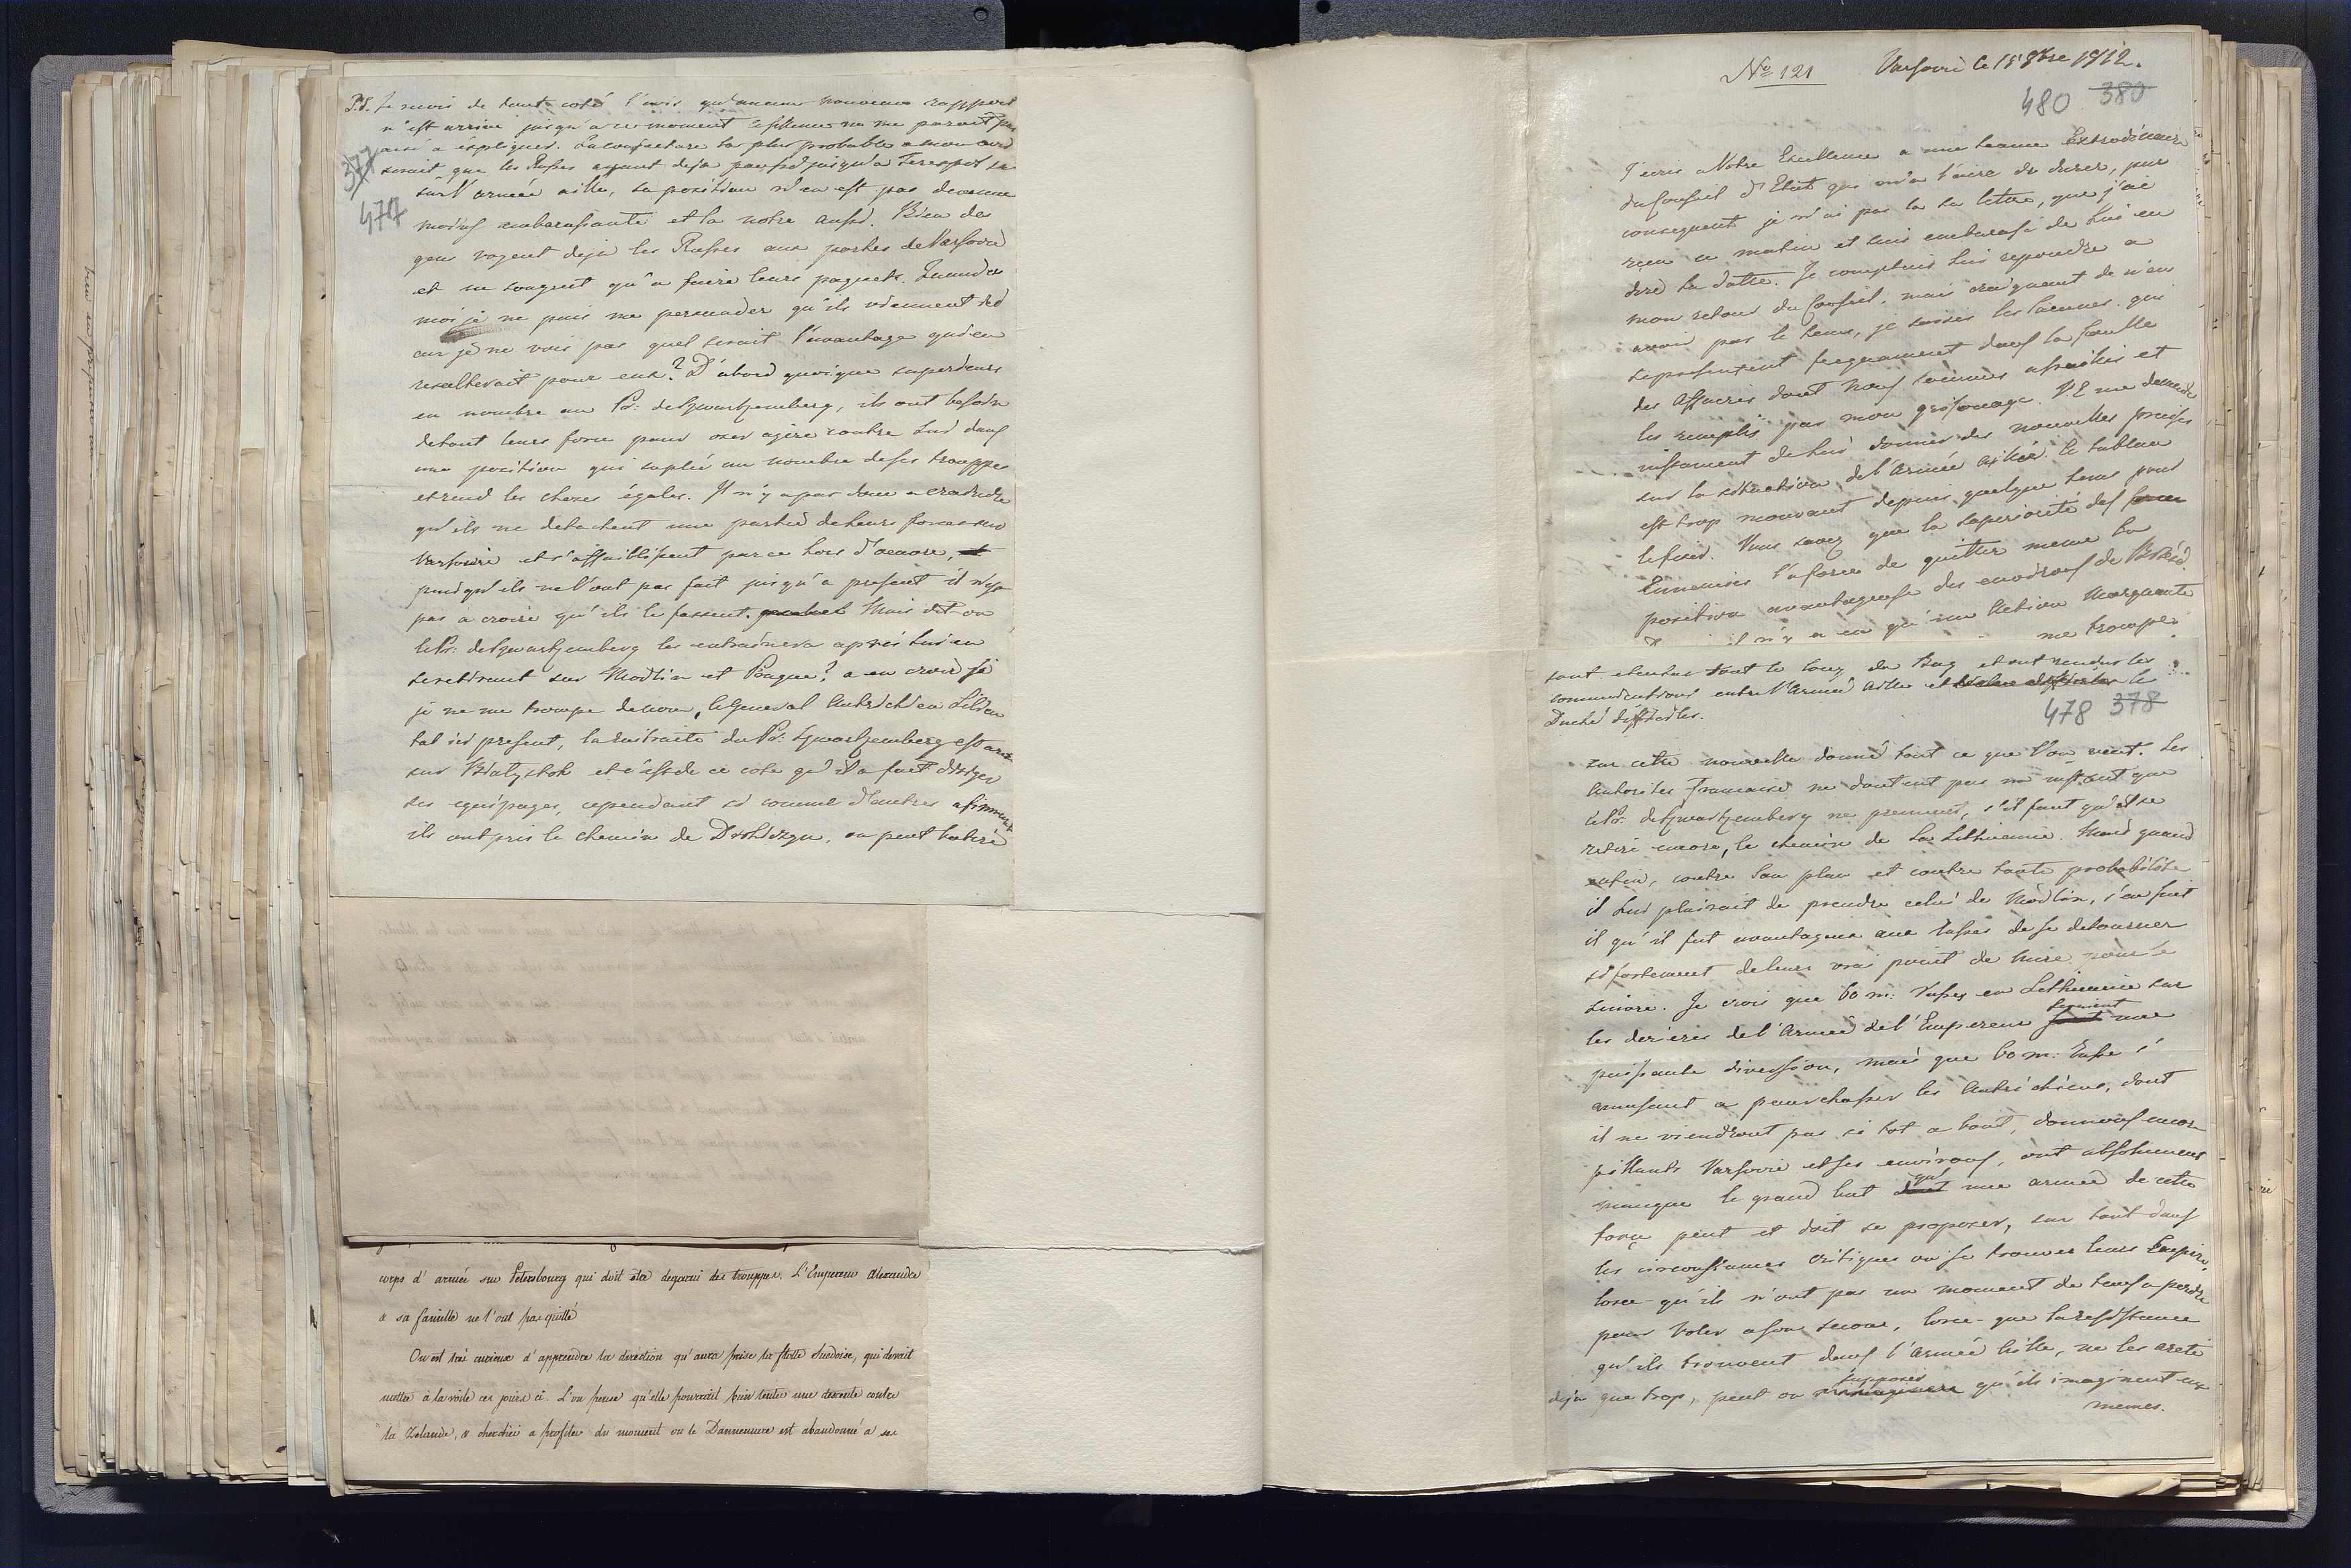 P.S. Je reçois de tout coté l'avis qu'aucun nouveau rapport
n'est arrivé jusqu'a ce moment ce silence ne me parait pas
aisé a expliquer. La conjecture la plus probable a mon avis
377
serait, que les Russes ayant deja passé jusqu'a Terespol
sur l'armée aillée, sa position n'en est pas devenue
477
moins embarassante et la notre aussi. Bien des
gens voyent deja les Russes aux portes de Varsovie
et ne songent qu'a faire leurs paquets. Quand a
moi je ne puis me persuader qu'ils viennent ici
car je ne vois pas quel serait l'avantage qui en
resulterait pour eux? D'abord quoique superieurs
en nombre au Pr: de Zwartzemberg, ils ont besoin
de tout leurs force pour oser agire contre Lui dans
une position qui suplée au nombre de ses trouppes
et rend les choses égales. Il n'y a pas donc a craindre
qu'ils ne detachent une partie de leurs forces sur
Varsovie et s'affaiblissent par ce hors d'oeuvre, et
puisqu'ils ne l'ont pas fait jusqu'a present il n'est
pas a croire qu'ils le fassent. Mais dit on
le Pr: de Zwartzemberg les entrainera après lui en
se retirant sur Modlin et Prague? a en croire si
je ne me trompe de nom, le General Autrichien Lilien
tal ici present, la retraite du Pr: Zwartzemberg est
sur Białystok et c'est de ce coté qu'il a fait diriger
ses equipages, cependant si comme d'autres affirment
ils ont pris le chemin de Drohiczyn, on peut batir
corps d'armée sur Petersbourg qui doit être degarni des trouppes. L'Empereur Alexandre
& sa famille ne l'ont pas quitté
On est très curieux d'apprendre la direction qu'aura prise la flotte Suedoise, qui devait
mettre à la voile ces jours ci. L'on pense qu'elle pourrait bien tenter une descente contre
la Zelande, & chercher a profiter du moment ou le Dannemarc est abandonné a ses
No 121 Varsovie le 15 8bre 1812.
480 380
J'ecris a Votre Excellence a une seance Extrodinaire
du Conseil d'Etat qui m'a l'aire de durer, par
consequent je n'ai pas là sa lettre, que j'ai
reçu ce matin et suis embarassé de Lui en
dire la datte. Je comptais Lui repondre a
mon retour du Conseil, mais craignant de n'en
avoir pas le tems, je saisis les lacunes qui
se presentent frequament dans la foulle
des Affaires dont nous sommes assaillis et
les remplis par mon grifonage. V.E. me demande
instament de Lui donner des nouvelles precises
sur la situation de l'Armée aillée. Le tableau
est trop mouvant depuis quelque tems pour
le fixer. Vous savez que la superiorité des forces
Ennemies l'a forcé de quitter meme la
position avantageuse des environs de Brześć.
il n'y a eu qu'une Action Marquante
me trompe
sont etendus tout le long du Bug et ont rendu les
communications entre l'armée aillée et le
Duché difficiles.
478 378
sur cette nouvelle donnée tout ce que l'on veut. Les
Autorités Francaises ne doutent pas un instant que
le Pr: de Zwartzemberg ne prennent, s'il faut qu'il se
retire encore, le chemin de la Lithuanie. Mais quand
enfin, contre son plan et contre toute probabilité
il Lui plairait de prendre celui de Modlin, s'en suit
il qu'il fut avantageux aux Russes de se detourner
si fortement de leur vrai point de mire pour le
suivre. Je crois que 60 m: Russes en Lithuanie sur
les derieres de l'Armée de l'Empereur feraient une
puissante diversion, mais que 60 m: Russe s'
amusant a pourchasser les Autrichiens, dont
il ne viendront pas si tot a bout, donnons encore
pillants Varsovie et ses environs, ont absolument
manque le grand but qu' une armée de cette
force peut et doit se proposer, sur tout dans
les circonstances critiques ou se trouve leur Empire,
lorce qu'ils n'ont pas un moment de tems a perdre
pour voler a son secour, lorce que la resistance
qu'ils trouvent dans l'armée Aillée, ne les arete
deja que trop, peut on supposer qu'ils imaginent eux
memes.